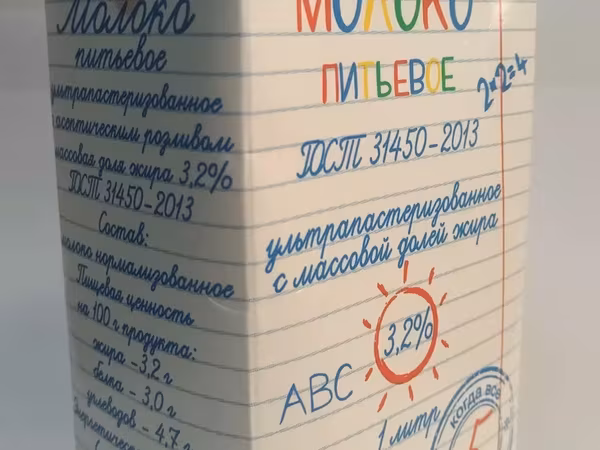 Молоко
питьевое
ультрапастеризованное
с асептическим розливом
массовая доля жира 3,2%
ГОСТ 31450-2013
Состав:
молоко нормализованное
Пищевая ценность
на 100 г продукта:
жира - 3,2 г
белка - 3,0 г
углеводов - 4,7 г
МОЛОКО
ПИТЬЕВОЕ
2×2=4
ГОСТ 31450-2013
ультрапастеризованное
с массовой долей жира
3,2%
ABC
1 литр
когда все
5